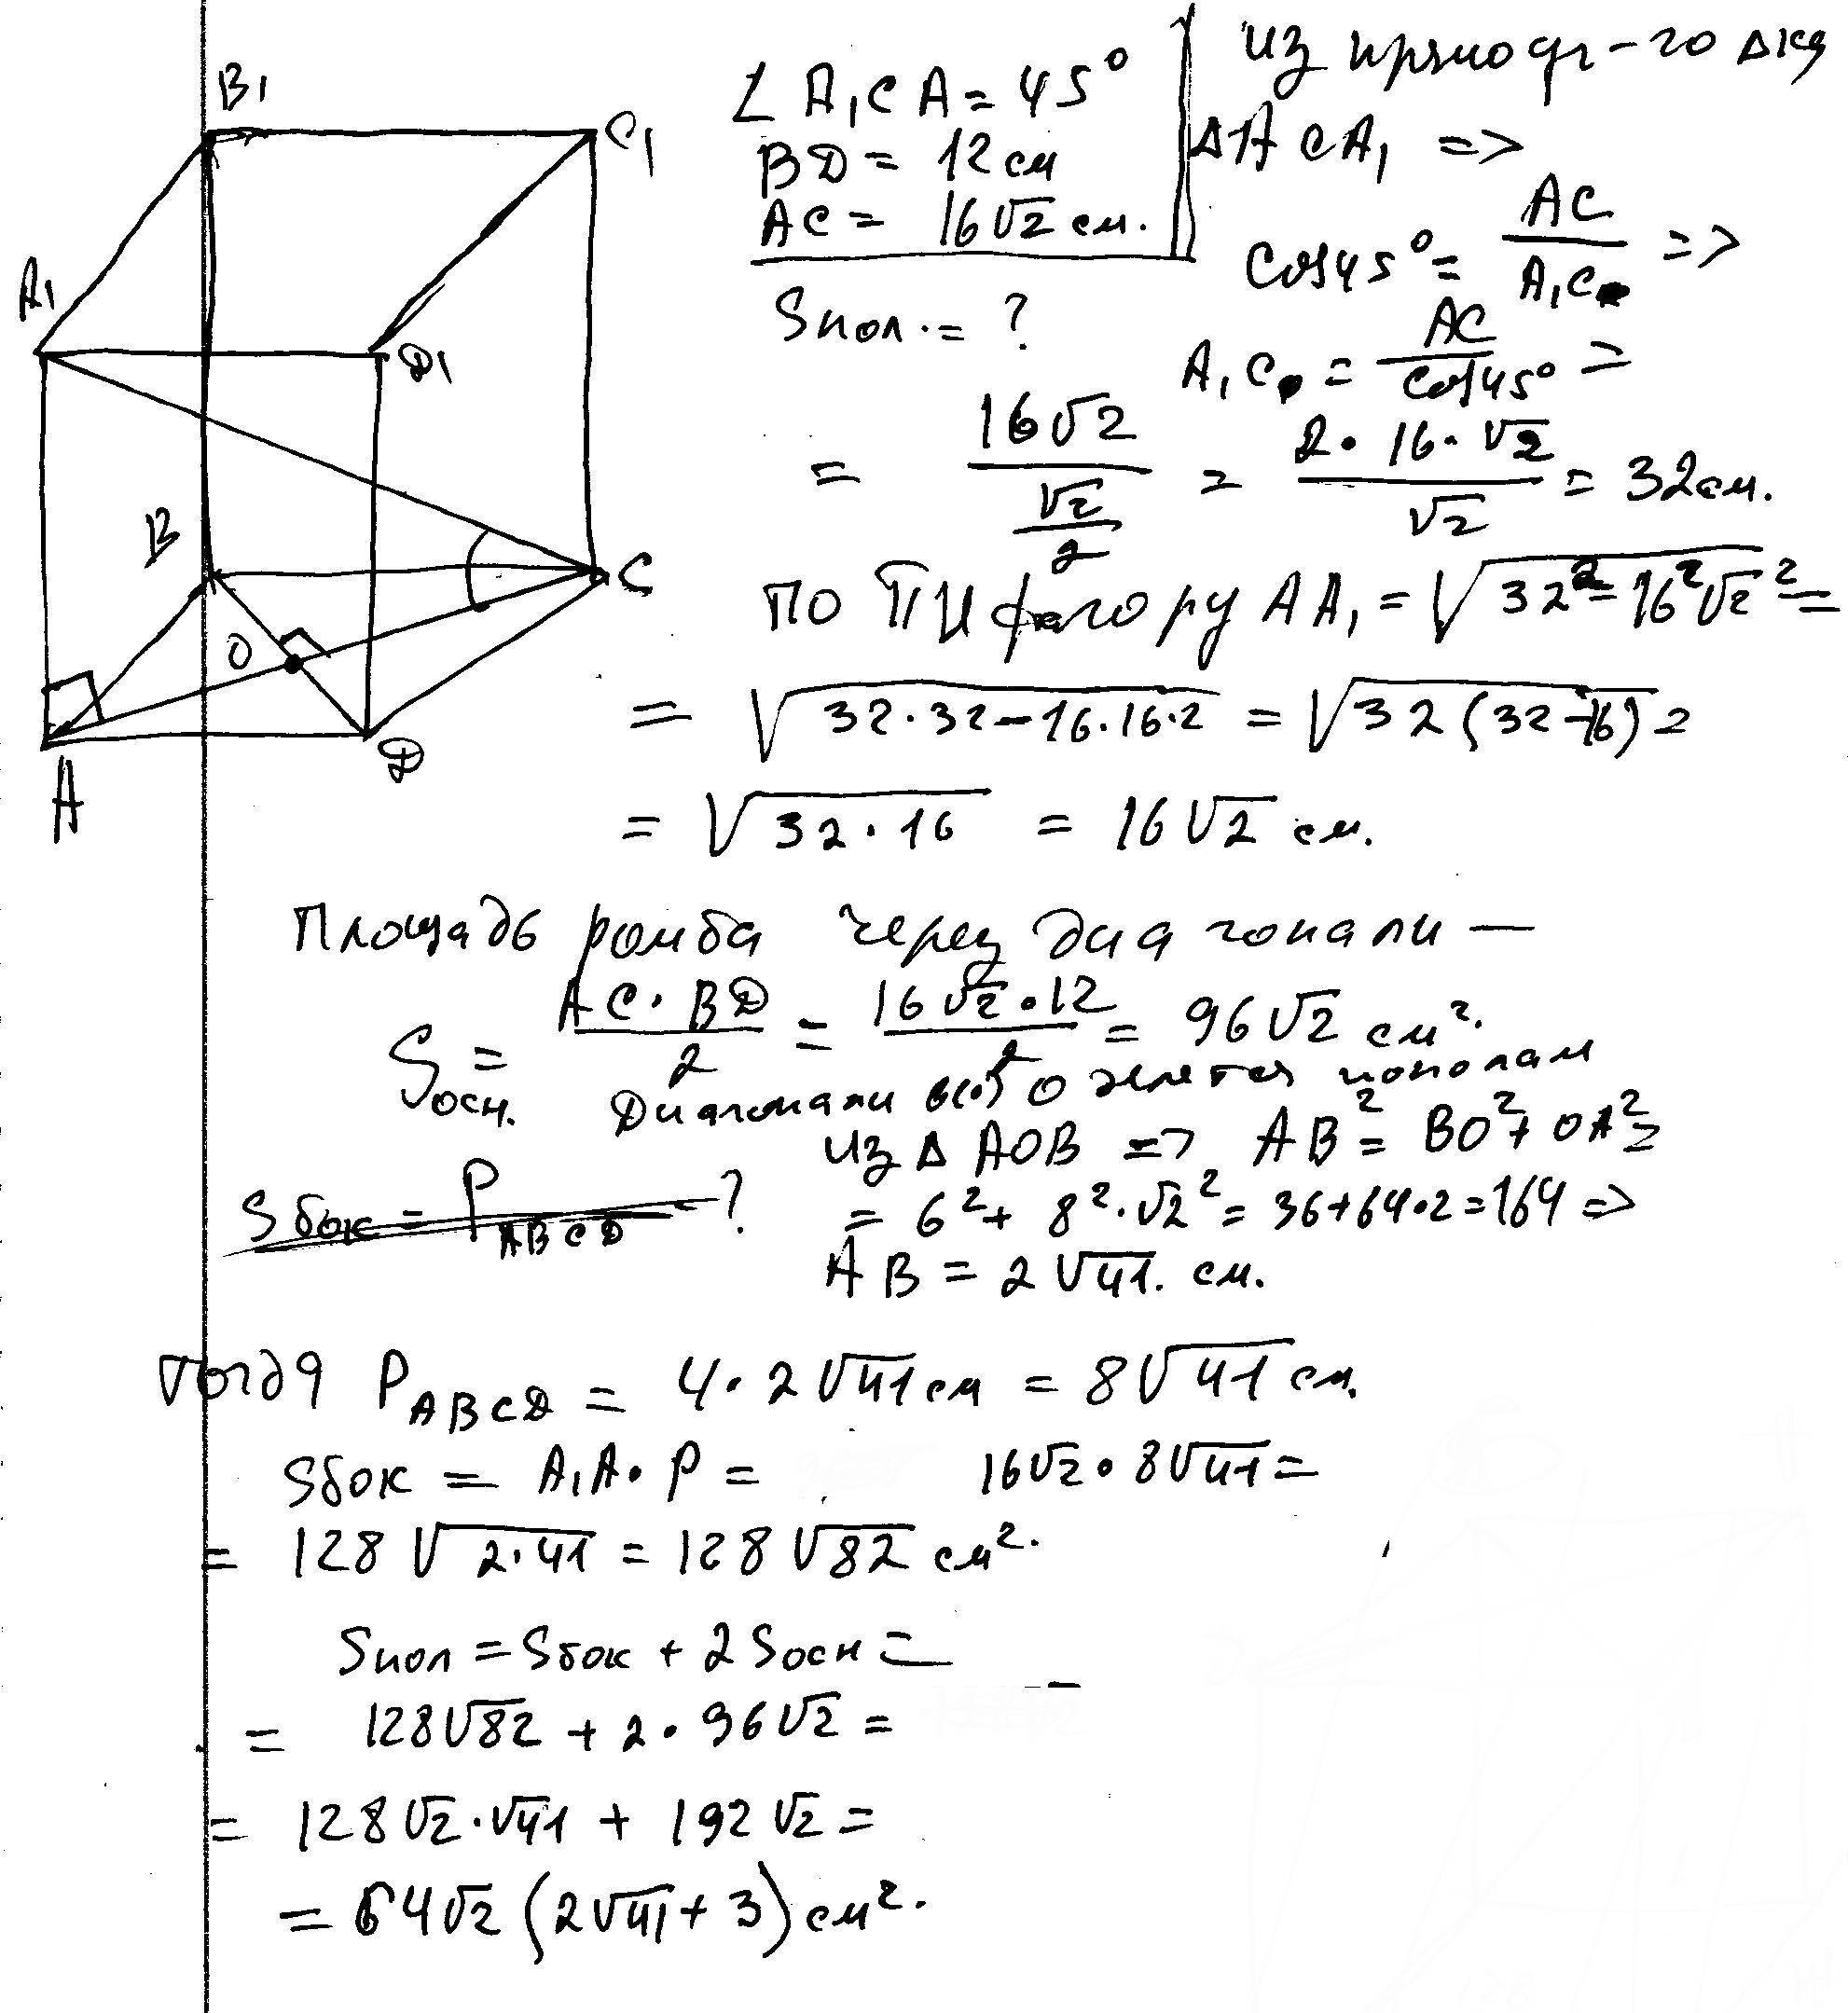 B₁
C₁
A₁
D₁
B
C
O
A
D
∠A₁CA = 45°
BD = 12 см
AC = 16√2 см.
Sпол. = ?
из
ΔACA₁ =>
cos45° = AC/A₁C =>
A₁C = AC/cos45° =
= 16√2/(√2/2) = 2·16·√2/√2 = 32см.
по Пифагору AA₁ = √(32² - 16²√2²) =
= √(32·32 - 16·16·2) = √(32(32-16)) =
= √(32·16) = 16√2 см.
Площадь ромба через диагонали —
Sосн. = AC·BD/2 = 16√2·12/2 = 96√2 см².
Диагонали в(·) O делятся пополам
из Δ AOB => AB² = BO² + OA² =
Sбок = P ABCD - ?
= 6² + 8²·√2² = 36+64·2=164 =>
AB = 2√41. см.
Тогда P ABCD = 4·2√41 см = 8√41 см.
Sбок = A₁A·P = 16√2·8√41 =
= 128√(2·41) = 128√82 см².
Sпол = Sбок + 2Sосн =
= 128√82 + 2·96√2 =
= 128√2·√41 + 192√2 =
= 64√2(2√41 + 3) см².